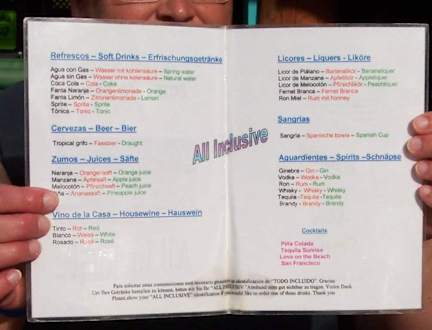 Refrescos – Soft Drinks – Erfrischungsgetränke
Agua con Gas – Wasser mit kohlensäure - Spring water
Agua sin Gas – Wasser ohne kohlensäure - Natural water
Coca Cola – Cola - Coke
Fanta Naranja – Orangenlimonade - Orange
Fanta Limón – Zitronenlimonade - Lemon
Sprite – Sprite - Sprite
Tónica – Tonic - Tonic
Cervezas – Beer – Bier
Tropical grifo – Fassbier - Draught
Zumos – Juices – Säfte
Naranja – Orangensaft – Orange juice
Manzana – Apfelsaft – Apple juice
Melocotón – Pfirsichsaft – Peach juice
Piña – Ananassaft – Pineapple juice
Vino de la Casa – Housewine – Hauswein
Tinto – Rot – Red
Blanco – Weiss – White
Rosado – Rosé – Rosé
All Inclusive
Licores – Liquers - Liköre
Licor de Plátano – Bananellikör - Bananeliquer
Licor de Manzana – Apfellikör - Appleliquer
Licor de Melocotón – Pfirsichlikör - Peachliquer
Fernet Branca – Fernet Branca
Ron Miel – Rum mit Honney
Sangrias
Sangria – Spanische bowle – Spanish Cup
Aguardientes – Spirits –Schnäpse
Ginebra – Gin – Gin
Vodka – Wodka - Vodka
Ron – Rum - Rum
Whisky – Whisky - Whisky
Tequila -Tequila -Tequila
Brandy – Brandy - Brandy
Cocktails
Piña Colada
Tequila Sunrise
Love on the Beach
San Francisco
Para solicitar estas consumiciones será necesario presentar su identificación de "TODO INCLUIDO". Gracias
Um Ihre Getränke bestellen zu können, bitten wir Sie Ihr "ALL INCLUSIVE" Armband oder gut sichtbar zu tragen. Vielen Dank
Please show your "ALL INCLUSIVE" identification if you would like to order one of these drinks. Thank you